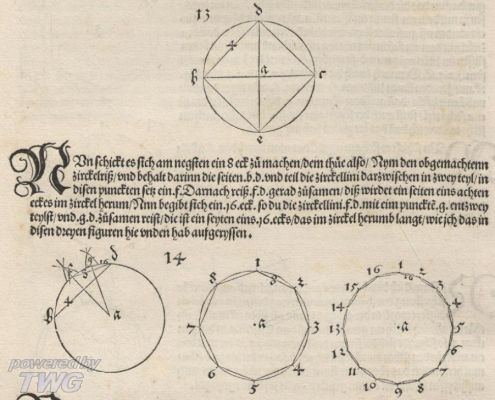 13
d
4
b
a
c
e
NUn schickt es sich am negsten ein 8 eck zů machen/dem thůe also/ Nym den obgemachtenn
zirckelriß/vnd behalt darinn die seiten.b.d.vnd teil die zirckellini darzwischen in zwey teyl/in
disen punckten setz ein.f.Darnach reiß.f.d.gerad zůsamen/diß wirdet ein seiten eins achten
eckes im zirckel herum/Nun begibt sich ein.16.eck.so du die zirckellini.f.d.mit eim punckte.g.entzwey
teylst/vnd.g.d.zůsamen reist/die ist ein seyten eins.16.ecks/das im zirckel herumb langt/wie jch das in
disen dreyen figuren hie vnden hab auffgeryssen.
14
f g 16 d
8
4
b
a
1
8 2
7 .a 3
6 4
5
1
16 16 2
15 3
14 4
13 .a 5
12 6
11 7
10 9 8
powered by
TWG